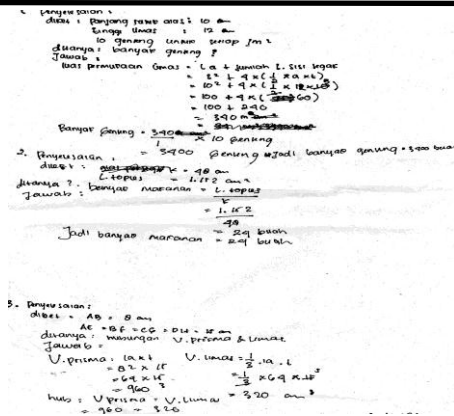 Penyelesaian :
diket : panjang rusuk alas : 10 cm
tinggi limas : 12 cm
10 genteng untuk setiap 1m²
ditanya : banyak genteng ?
Jawab :
luas permukaan limas = L a + jumlah L. sisi tegak
= s² + 4 × ( 1/2 × a × t )
= 10² + 4 × ( 1/2 ×
= 100 + 4 × ( 60)
= 100 + 240
= 340 m²
Banyak genteng = 340 / 1 × 10 genteng
= 3400 genteng Jadi banyak genteng = 3400 buah
2. Penyelesaian :
diket : = 48 cm
L. toples = 1.152 cm²
ditanya ? banyak makanan = L. toples
Jawab :
= 1.152
48
= 24 buah
Jadi banyak makanan = 24 buah
3. Penyelesaian :
diket = AB = 8 cm
AE = BF = CG = DH = 15 cm
ditanya : hubungan V. prisma & limas
Jawab =
V. prisma : la × t V. limas = 1/3 . la . t
= 8² × 15
= 64 × 15 = 1/3 × 64 × 15
= 960 ³ = 320 cm³
hub : V prisma = V. limas
= 960 = 320